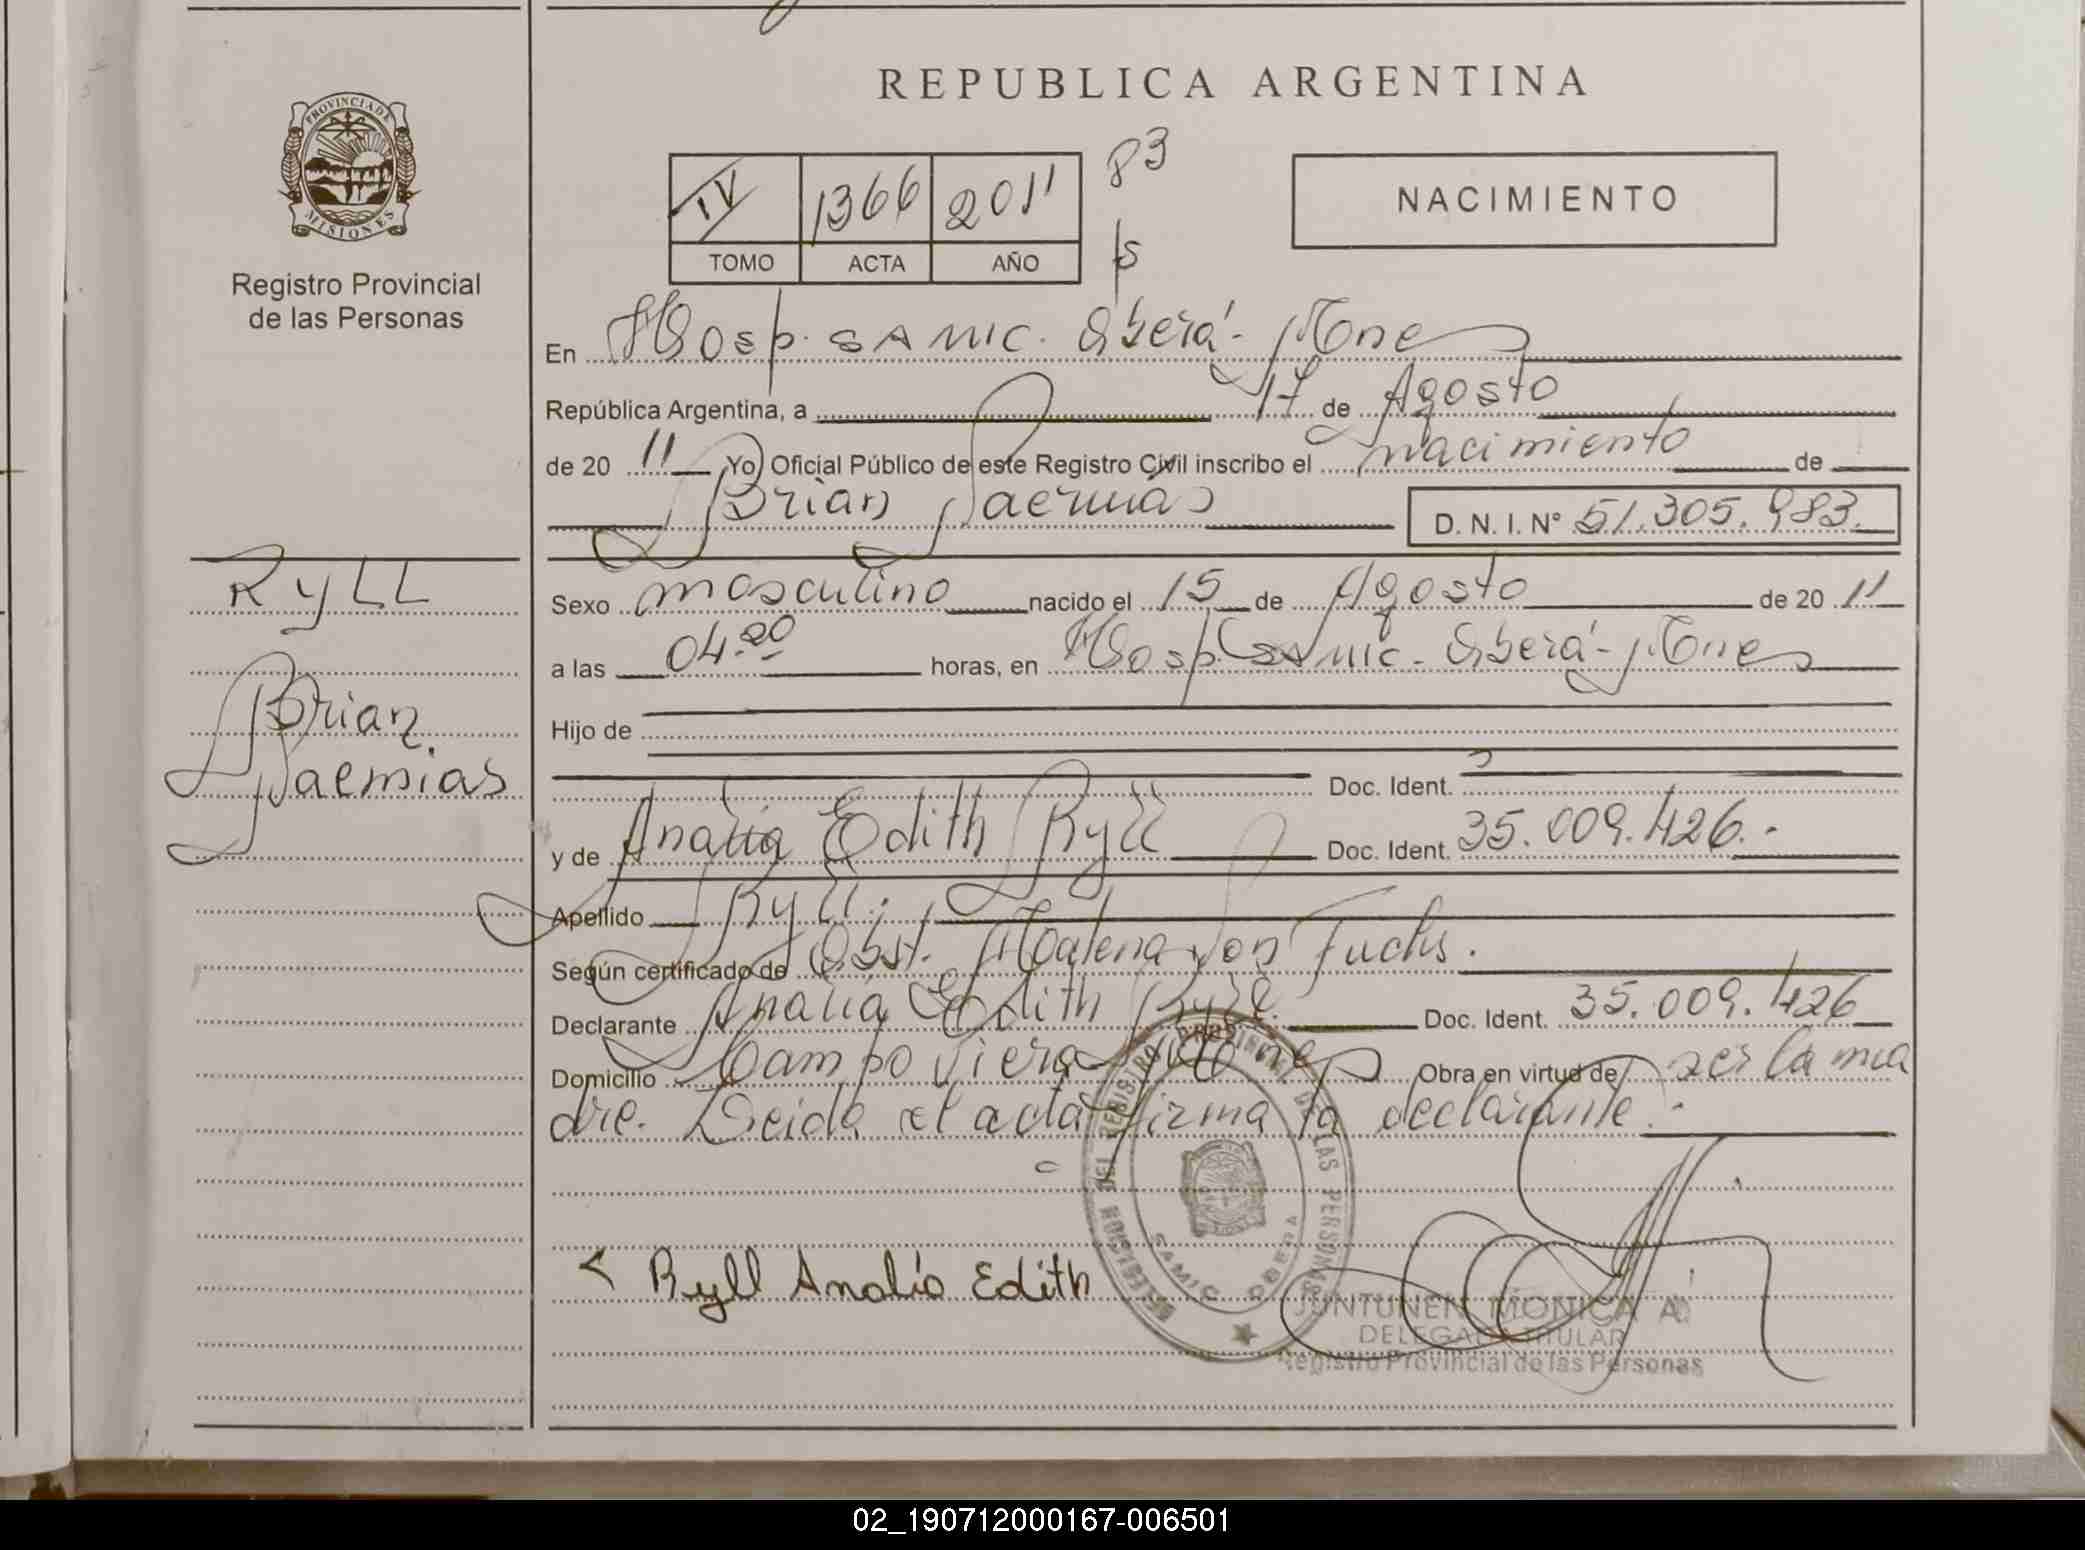 REPUBLICA ARGENTINA
PROVINCIA DE
MISIONES
Registro Provincial
de las Personas
IV 1366 2011 83
TOMO ACTA AÑO
NACIMIENTO
En Hosp. SAMIC. Oberá - Mnes
República Argentina, a 17 de Agosto
de 20 11 Yo, Oficial Público de este Registro Civil inscribo el nacimiento de
Brian D. N. I. Nº 51.305.983.
RYLL
Brian
Sexo masculino nacido el 15 de Agosto de 20 11
a las 04.20 horas, en Hosp. SAMIC. Oberá - Mnes
Hijo de
Doc. Ident.
y de Analia Edith Ryll Doc. Ident. 35.009.426.-
Apellido Ryll.
Según certificado de Obst. Von Fuchs.
Declarante Analia Edith Ryll. Doc. Ident. 35.009.426
Domicilio Campo Viera Mnes Obra en virtud de ser la ma
dre. Leida el acta firma la declarante.-
Ryll Analia Edith
DEL REGISTRO PROVINCIAL DE LAS PERSONAS
SAMIC OBERA
JUNTUNEN MONICA A
DELEGADA TITULAR
Registro Provincial de las Personas
02_190712000167-006501